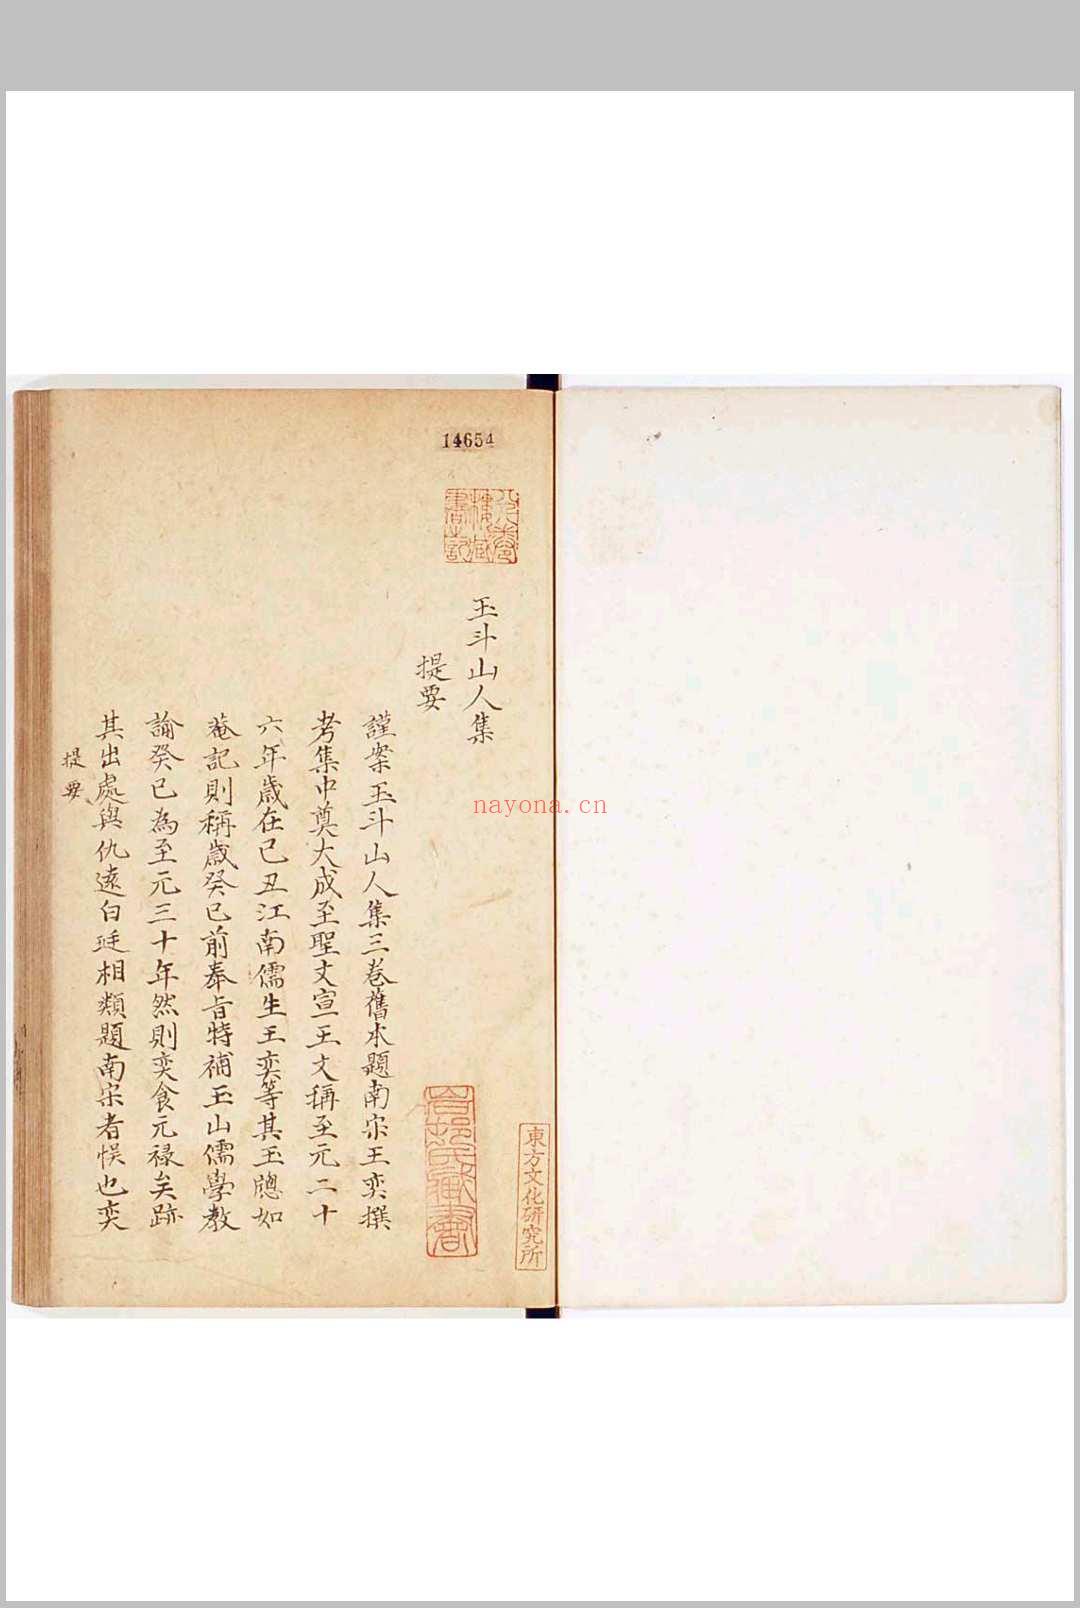 14654
玉斗山人集
提要
謹案玉斗山人集三卷舊本題南宋王奕撰
考集中奠大成至聖文宣王文稱至元二十
六年歲在己丑江南儒生王奕等其玉牕如
菴記則稱歲癸巳前奉旨特補玉山儒學教
諭癸巳為至元三十年然則奕食元祿矣跡
其出處與仇遠白珽相類題南宋者悞也奕
提要
東方文化研究所
nayona.cn